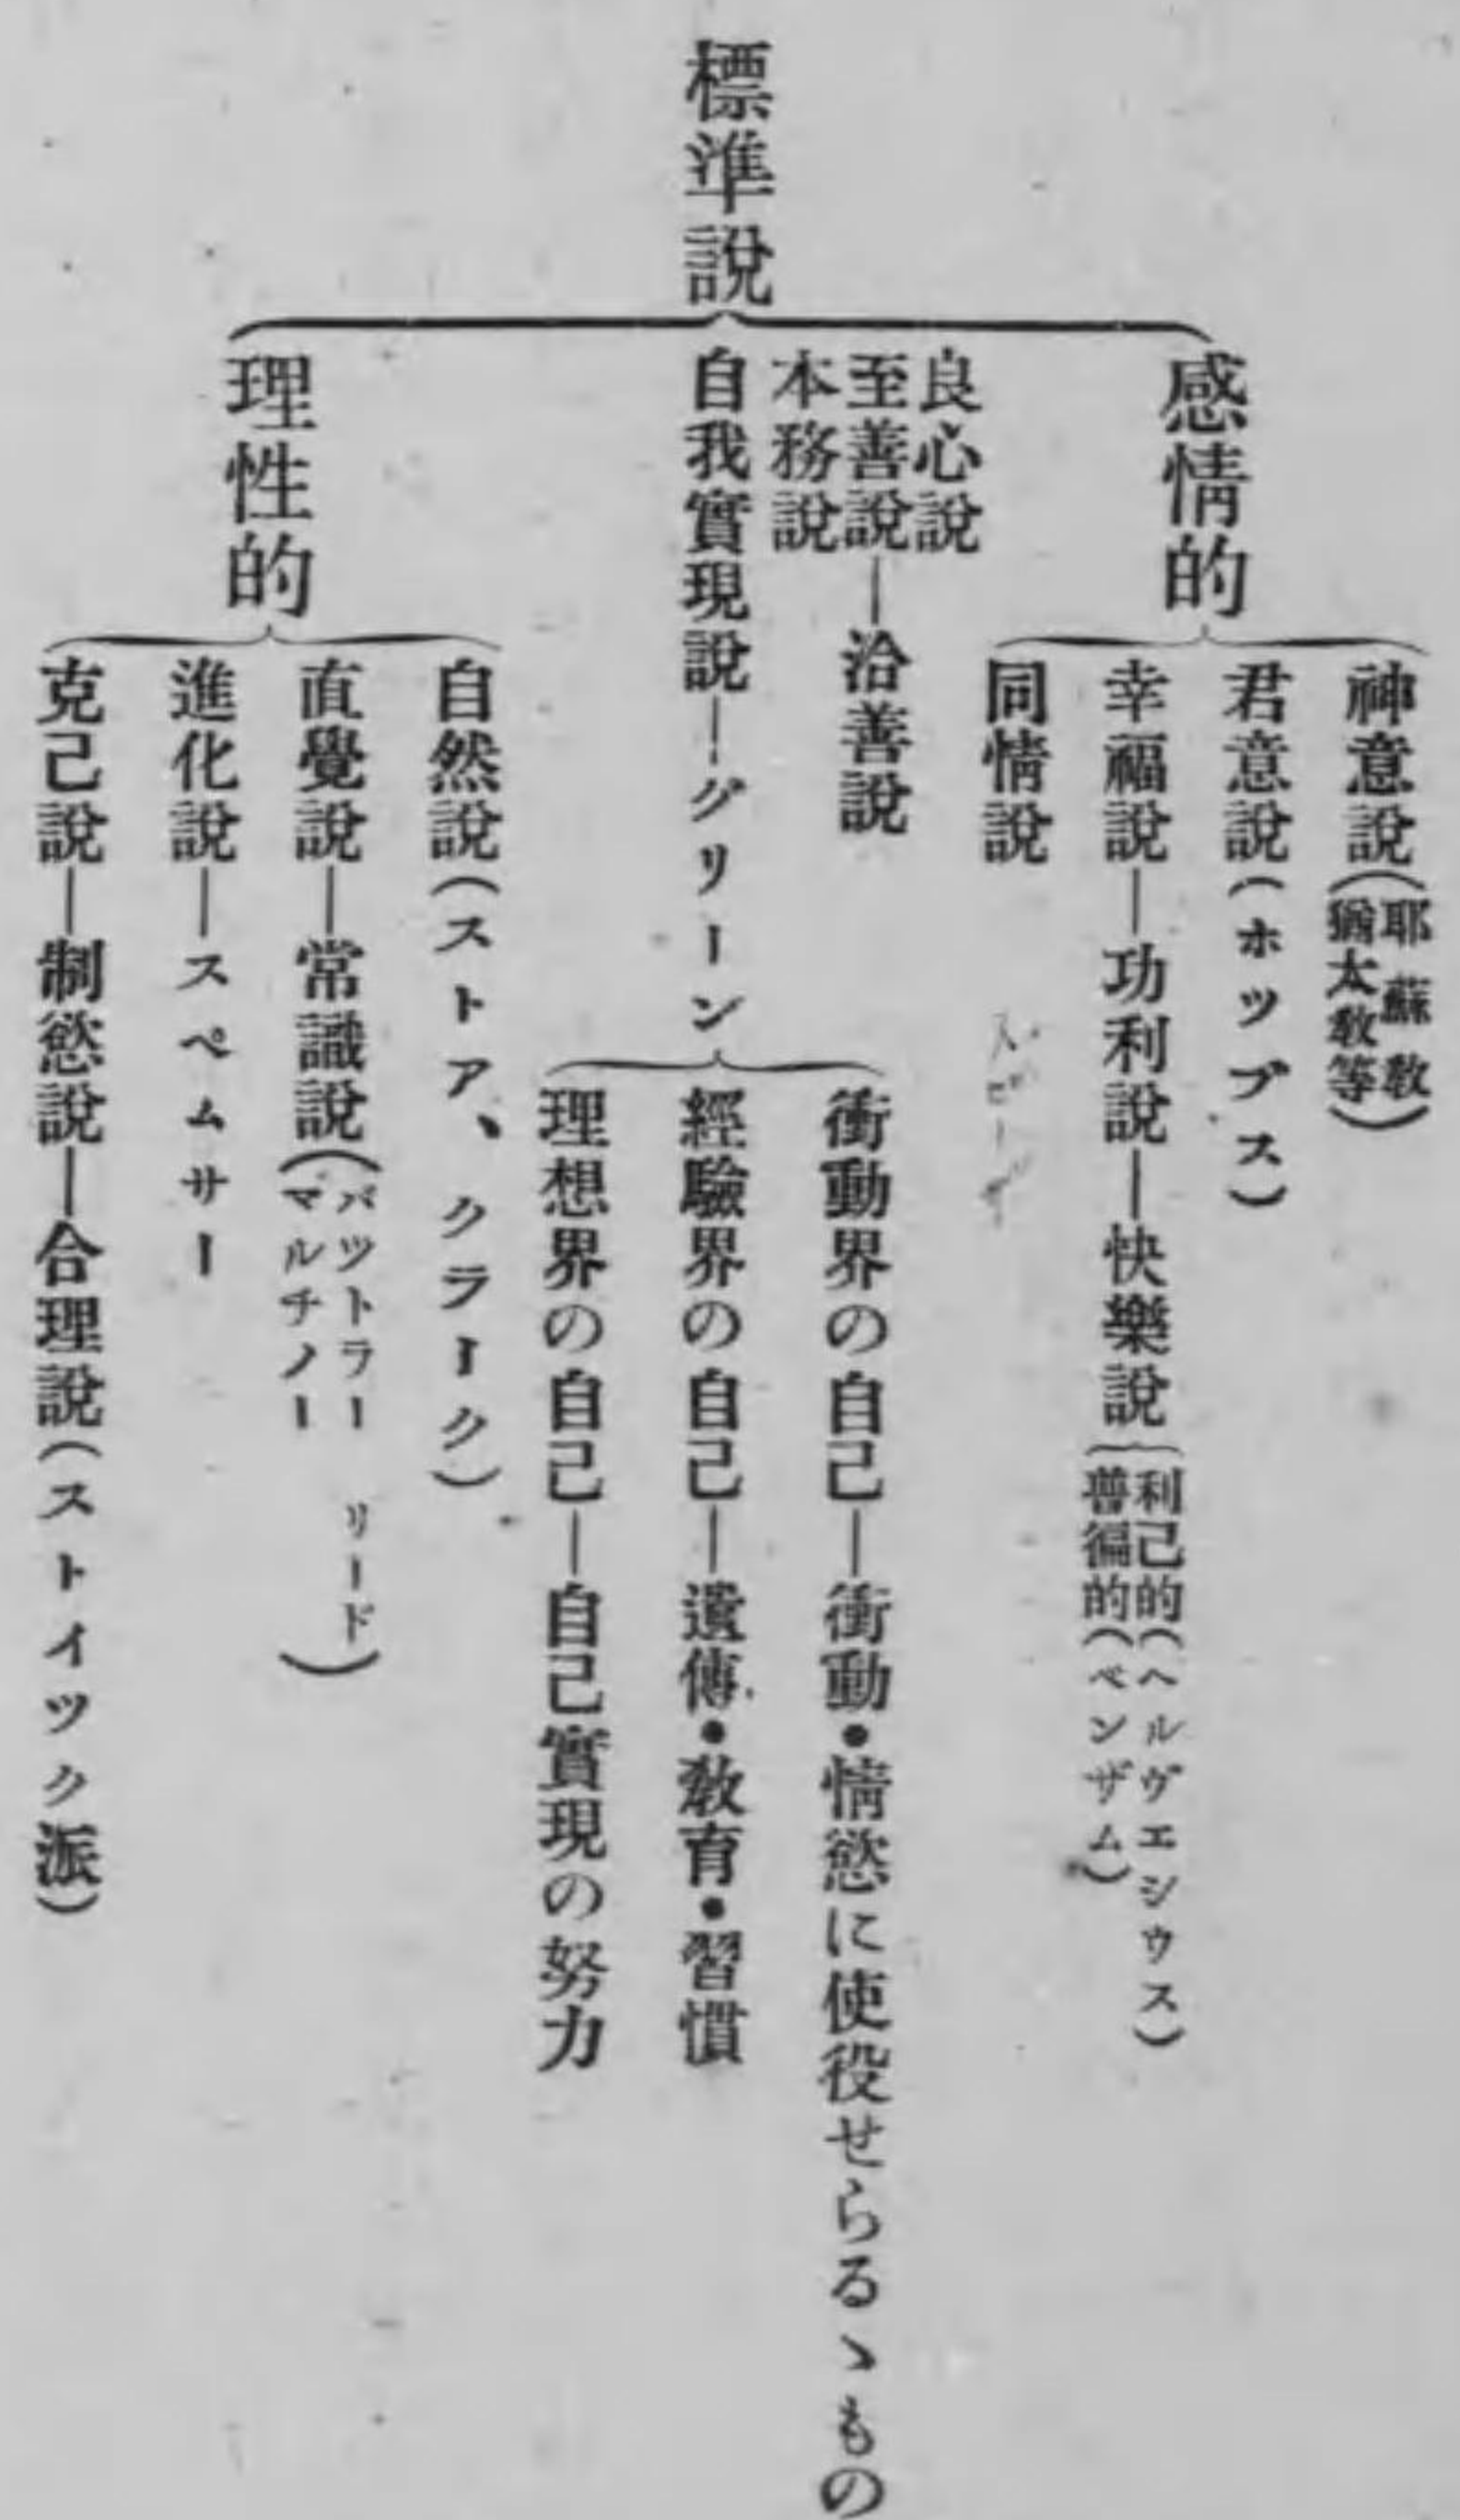 標準說
感情的
神意說(耶蘇敎
猶太敎等)
君意說(ホッブス)
幸福說―功利說―快樂說
利己的(ヘルヴエシウス)
普徧的(ベンザム)
同情說
良心說
至善說―洽善說
本務說
自我實現說―グリーン
衝動界の自己―衝動・情慾に使役せらるゝもの
經驗界の自己―遺傳・敎育・習慣
理想界の自己―自己實現の努力
理性的
自然說(ストア、クラーク)
直覺說―常識說(バットラー リード
マルチノー)
進化說―スペムサー
克己說―制慾說―合理說(ストイツク派)